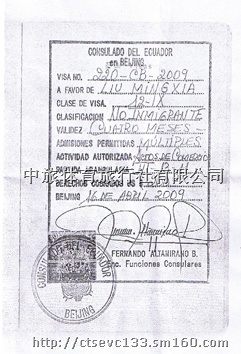 CONSULADO DEL ECUADOR
en BEIJING
VISA NO. 220-CB-2009
A FAVOR DE LIU MINGXIA
CLASE DE VISA. 12-IX
CLASIFICACION NO INMIGRANTE
VALIDEZ CUATRO MESES-
ADMISIONES PERMITIDAS MÚLTIPLES
ACTIVIDAD AUTORIZADA ACTOS DE COMERCIO
PARTIDA ARANCELARIA
中旅体育旅行社有限公司
DERECHOS COBRADOS US $
BEIJING 16 DE ABRIL 2009
FERNANDO ALTAMIRANO B.
Enc. Funciones Consulares
CONSULADO DEL ECUADOR
BEIJING
http://ctsevc133.sm160.com